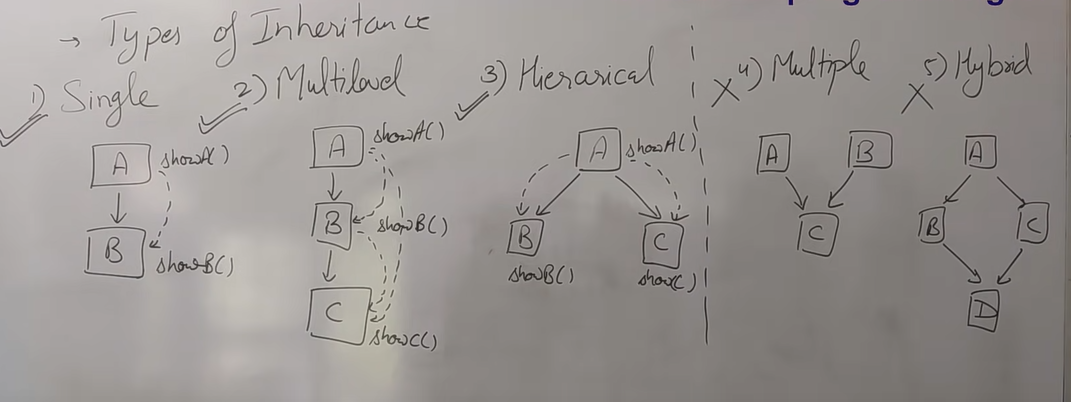 → Types of Inheritance
1) Single
A showA()
B showB()
2) Multilevel
A showA()
B showB()
C showC()
3) Hierarical
A showA()
B C
showB() show()
4) Multiple
A B
C
5) Hybrid
A
B C
D